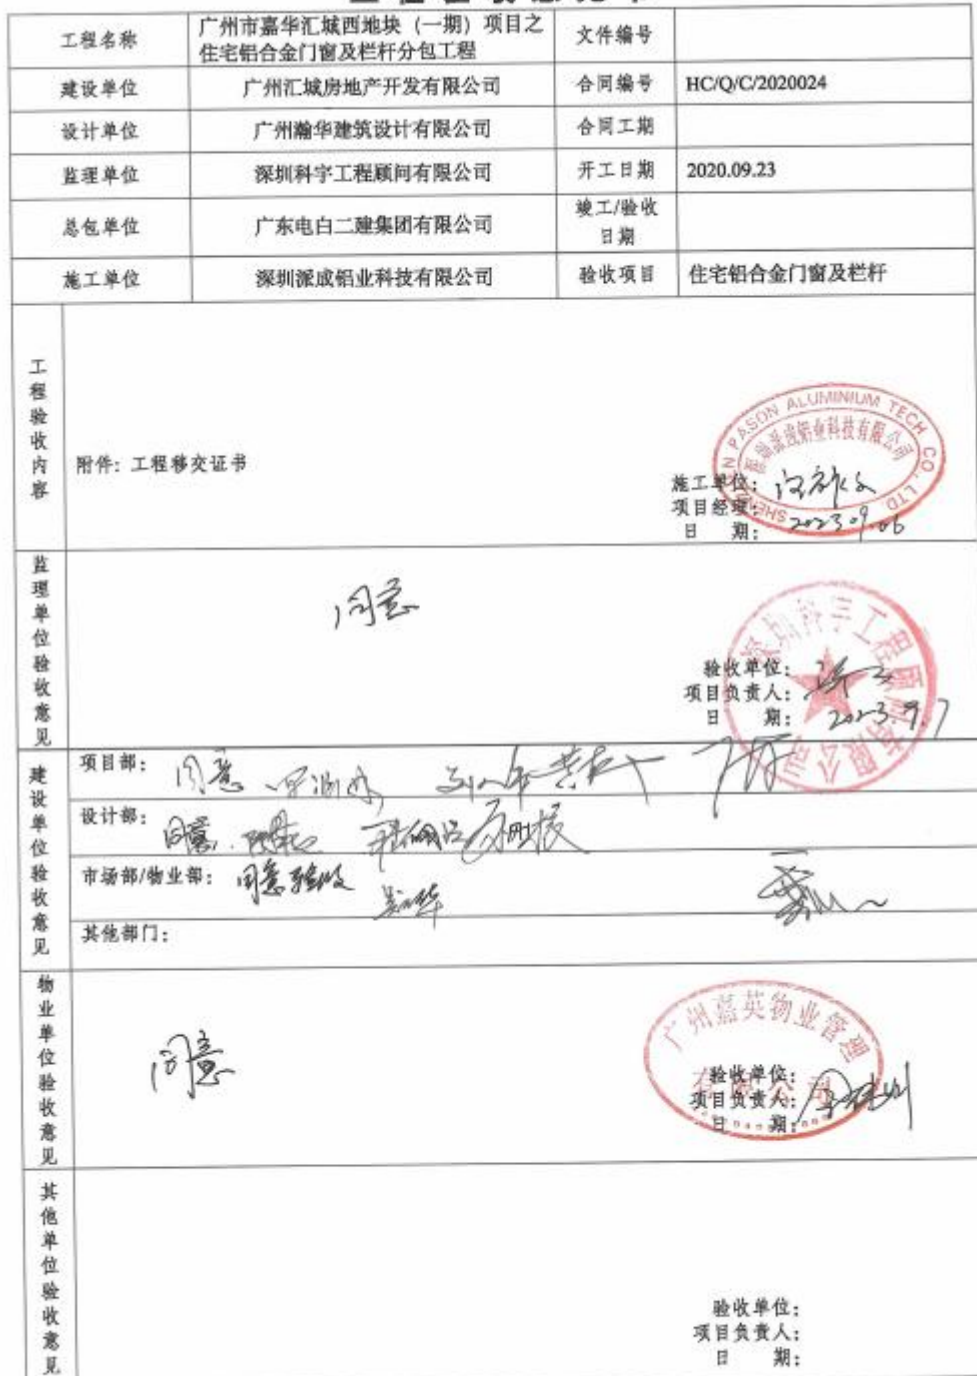 工程名称 广州市嘉华汇城西地块（一期）项目之 文件编号
住宅铝合金门窗及栏杆分包工程
建设单位 广州汇城房地产开发有限公司 合同编号 HC/Q/C/2020024
设计单位 广州瀚华建筑设计有限公司 合同工期
监理单位 深圳科宇工程顾问有限公司 开工日期 2020.09.23
总包单位 广东电白二建集团有限公司 竣工/验收
日期
施工单位 深圳派成铝业科技有限公司 验收项目 住宅铝合金门窗及栏杆
工程验收内容
附件: 工程移交证书
SHENZHEN PASON ALUMINIUM TECH CO., LTD
深圳派成铝业科技有限公司
施工单位:
项目经理:
日 期: 2023.09.06
监理单位验收意见
同意
深圳科宇工程顾问有限公司
验收单位:
项目负责人:
日 期: 2023.9.7
建设单位验收意见
项目部: 同意
设计部: 同意
市场部/物业部: 同意验收
其他部门:
物业单位验收意见
同意
广州嘉英物业管理
有限公司
验收单位:
项目负责人:
日 期:
其他单位验收意见
验收单位:
项目负责人:
日 期: